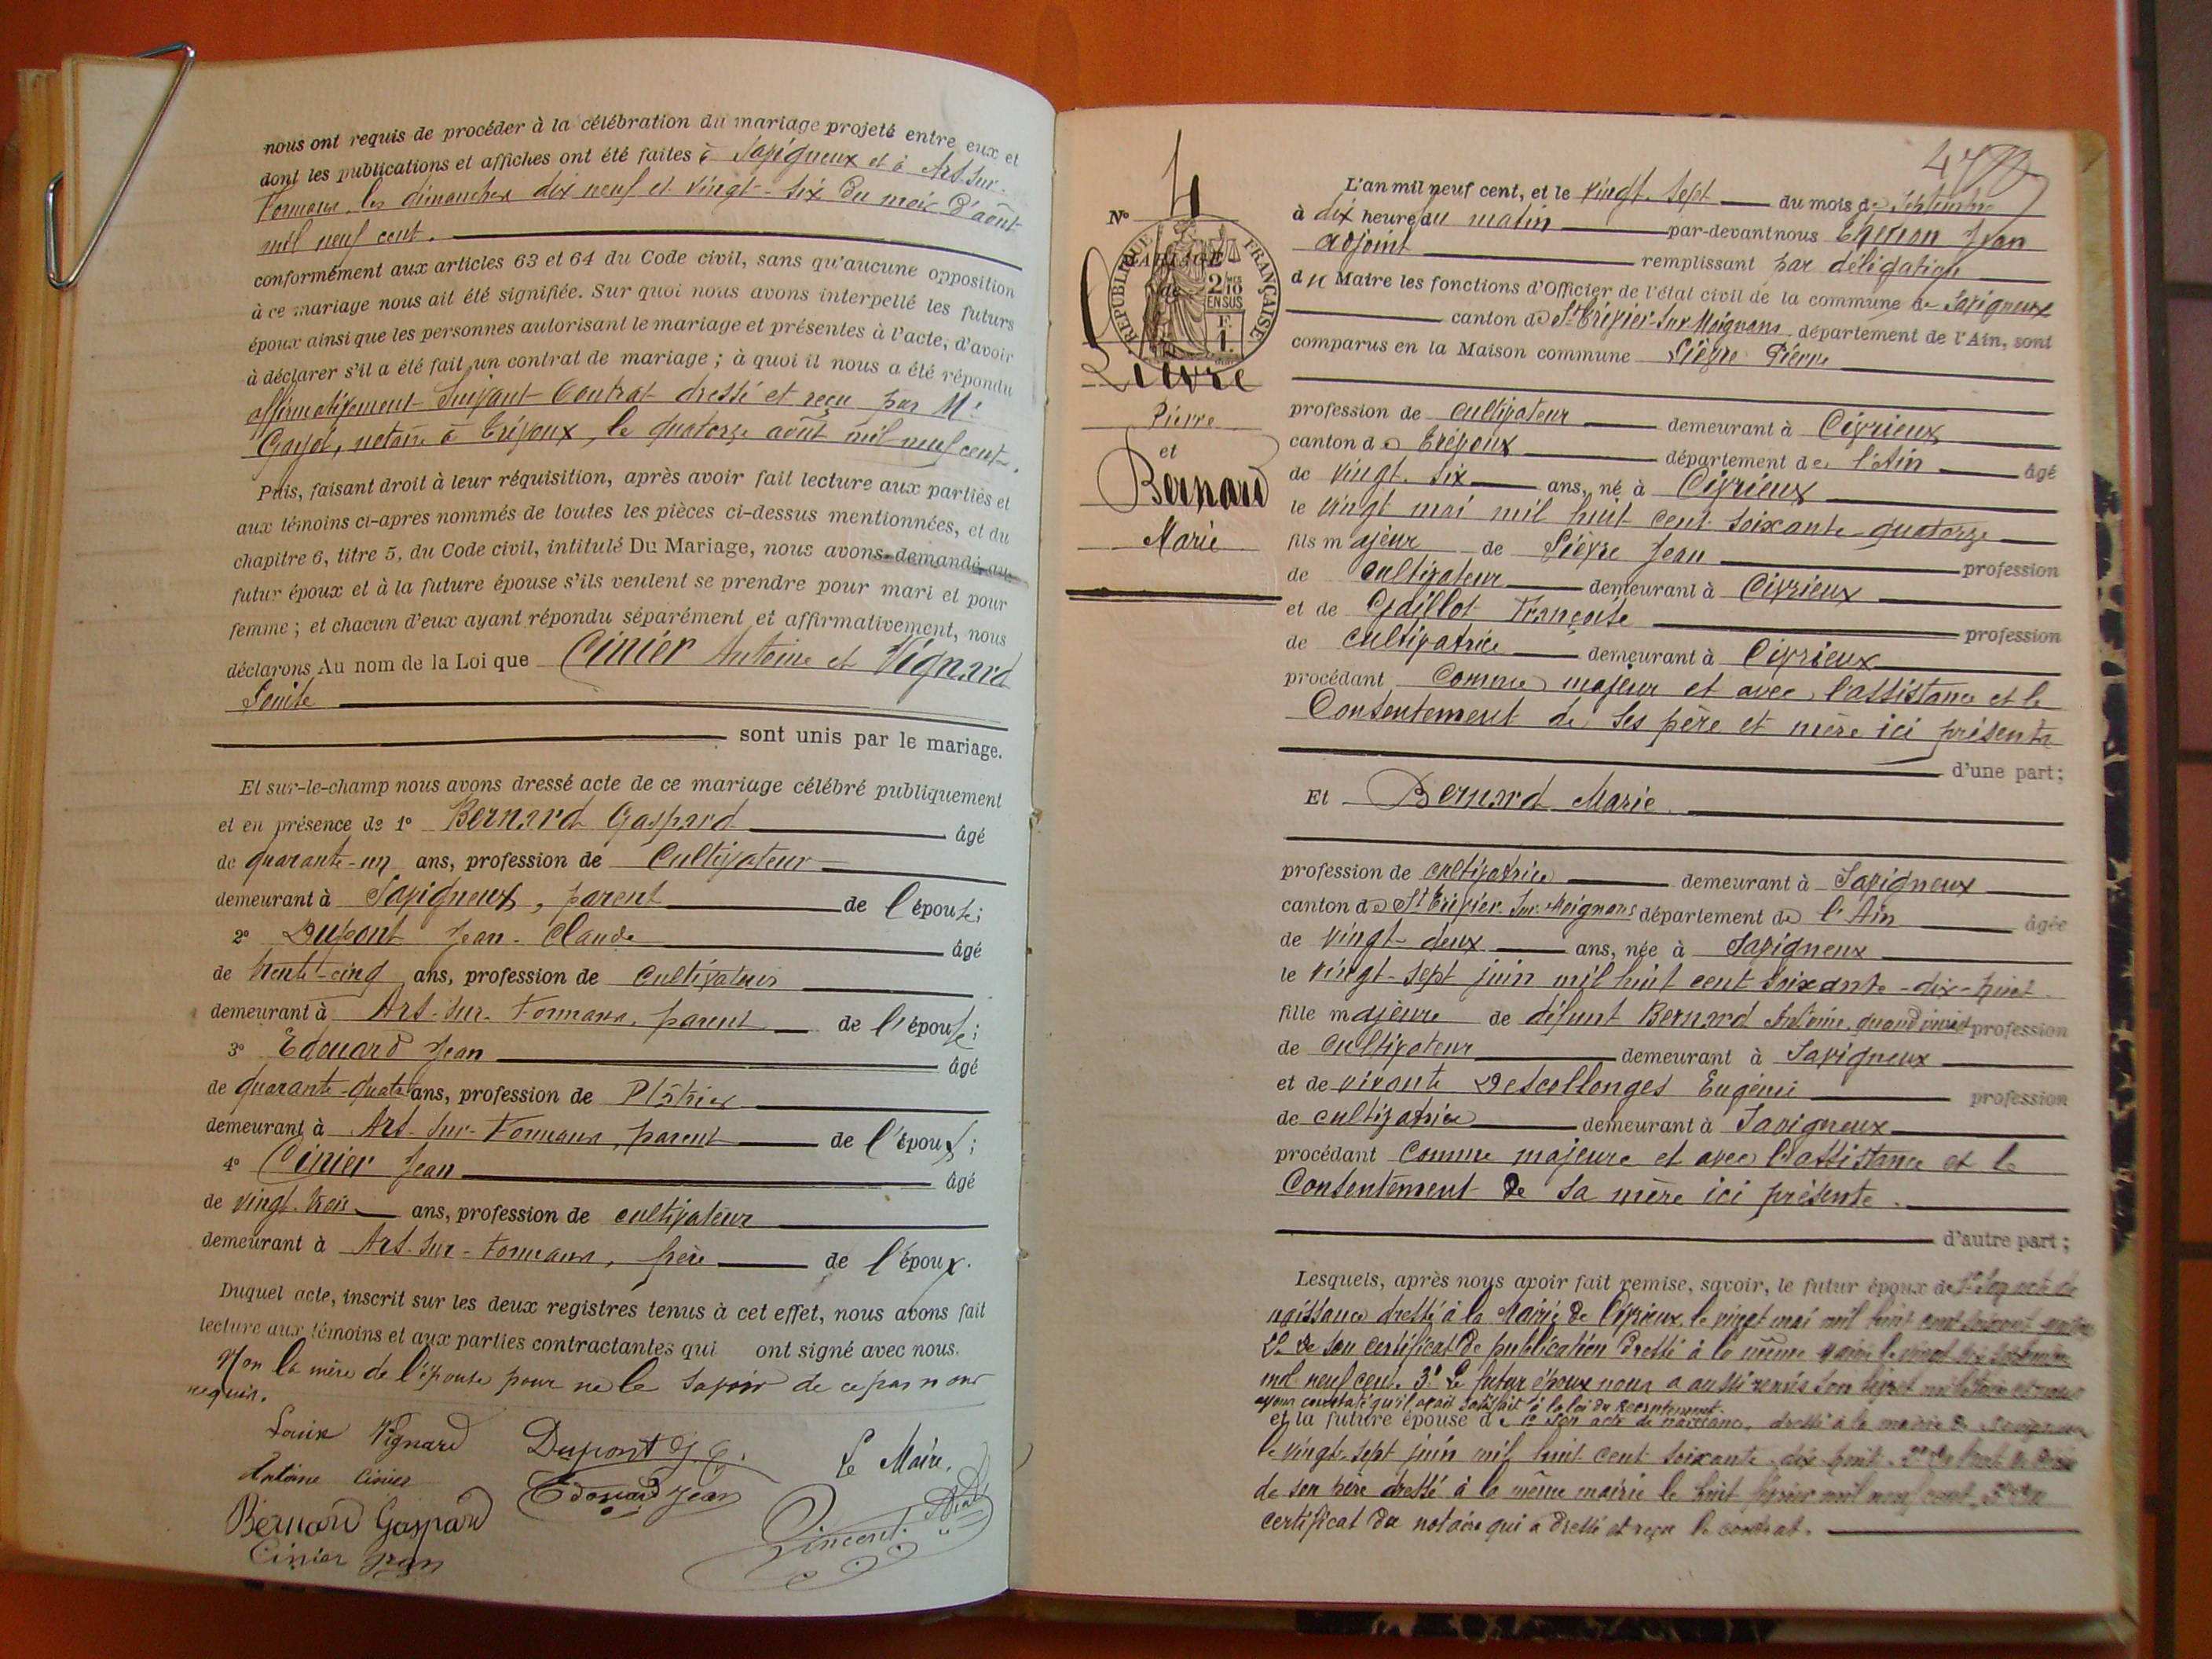 nous ont requis de procéder à la célébration du mariage projeté entre eux et
dont les publications et affiches ont été faites à Savigneux et à Ars-sur-
Formans, les dimanches dix neuf et vingt-six du mois d'août
mil neuf cent.
conformément aux articles 63 et 64 du Code civil, sans qu'aucune opposition
à ce mariage nous ait été signifiée. Sur quoi nous avons interpellé les futurs
époux ainsi que les personnes autorisant le mariage et présentes à l'acte, d'avoir
à déclarer s'il a été fait un contrat de mariage ; à quoi il nous a été répondu
affirmativement suivant Contrat dressé et reçu par Me
notaire à Trévoux, le quatorze août mil neuf cent.
Puis, faisant droit à leur réquisition, après avoir fait lecture aux parties et
aux témoins ci-après nommés de toutes les pièces ci-dessus mentionnées, et du
chapitre 6, titre 5, du Code civil, intitulé Du Mariage, nous avons demandé au
futur époux et à la future épouse s'ils veulent se prendre pour mari et pour
femme ; et chacun d'eux ayant répondu séparément et affirmativement, nous
déclarons Au nom de la Loi que Cinier Antoine et Vignard
Louise
sont unis par le mariage.
Et sur-le-champ nous avons dressé acte de ce mariage célébré publiquement
et en présence de 1° Bernard Gaspard âgé
de quarante-un ans, profession de Cultivateur
demeurant à Savigneux, parent de l'épouse;
2° Dupont Jean-Claude âgé
de trente-cinq ans, profession de cultivateur
demeurant à Ars-sur-Formans, parent de l'épouse;
3° Edouard Jean âgé
de quarante-quatre ans, profession de Plâtrier
demeurant à Ars-sur-Formans, parent de l'époux;
4° Cinier Jean âgé
de vingt-trois ans, profession de cultivateur
demeurant à Ars-sur-Formans, frère de l'époux.
Duquel acte, inscrit sur les deux registres tenus à cet effet, nous avons fait
lecture aux témoins et aux parties contractantes qui ont signé avec nous.
Non la mère de l'épouse pour ne le savoir de ce par nous
requis.
Louise Vignard Dupont J. C. Le Maire,
Antoine Cinier Edouard Jean
Bernard Gaspard Vincent
Cinier Jean
N° 4
MARIAGE
de
RÉPUBLIQUE FRANÇAISE
2/10 EN SUS
Lièvre
Pierre
et
Bernard
Marie
L'an mil neuf cent, et le vingt-sept du mois de Septembre
à dix heure du matin par-devant nous Jean
adjoint remplissant par délégation
du Maire les fonctions d'Officier de l'état civil de la commune de Savigneux
canton de St Trivier-sur-Moignans département de l'Ain, sont
comparus en la Maison commune Lièvre Pierre
profession de cultivateur demeurant à Civrieux
canton de Trévoux département de l'Ain âgé
de vingt-six ans, né à Civrieux
le vingt mai mil huit cent soixante-quatorze
fils majeur de Lièvre Jean profession
de cultivateur demeurant à Civrieux
et de Gaillot Françoise profession
de cultivatrice demeurant à Civrieux
procédant Comme majeur et avec l'assistance et le
Consentement de ses père et mère ici présents
d'une part;
Et Bernard Marie
profession de cultivatrice demeurant à Savigneux
canton de St Trivier-sur-Moignans département de l'Ain âgée
de vingt-deux ans, née à Savigneux
le vingt-sept juin mil huit cent soixante-dix-huit
fille majeure de défunt Bernard Antoine, quand vivait profession
de cultivateur demeurant à Savigneux
et de vivante Descollonges Eugénie profession
de cultivatrice demeurant à Savigneux
procédant Comme majeure et avec l'assistance et le
Consentement de sa mère ici présente.
d'autre part ;
Lesquels, après nous avoir fait remise, savoir, le futur époux de 1° Son acte de
naissance dressé à la Mairie de Civrieux le vingt mai mil huit cent soixante quatorze
2° de son certificat de publication dressé à la même mairie le vingt six septembre
mil neuf cent. 3° Le futur époux nous a aussi remis son livret militaire et nous
avons constaté qu'il avait satisfait à la loi du recrutement.
et la future épouse de 1° Son acte de naissance, dressé à la mairie de Savigneux
le vingt-sept juin mil huit cent soixante-dix-huit. 2° De l'acte de décès
de son père dressé à la même mairie le huit février mil neuf cent. 3° Du
certificat du notaire qui a dressé et reçu le contrat.